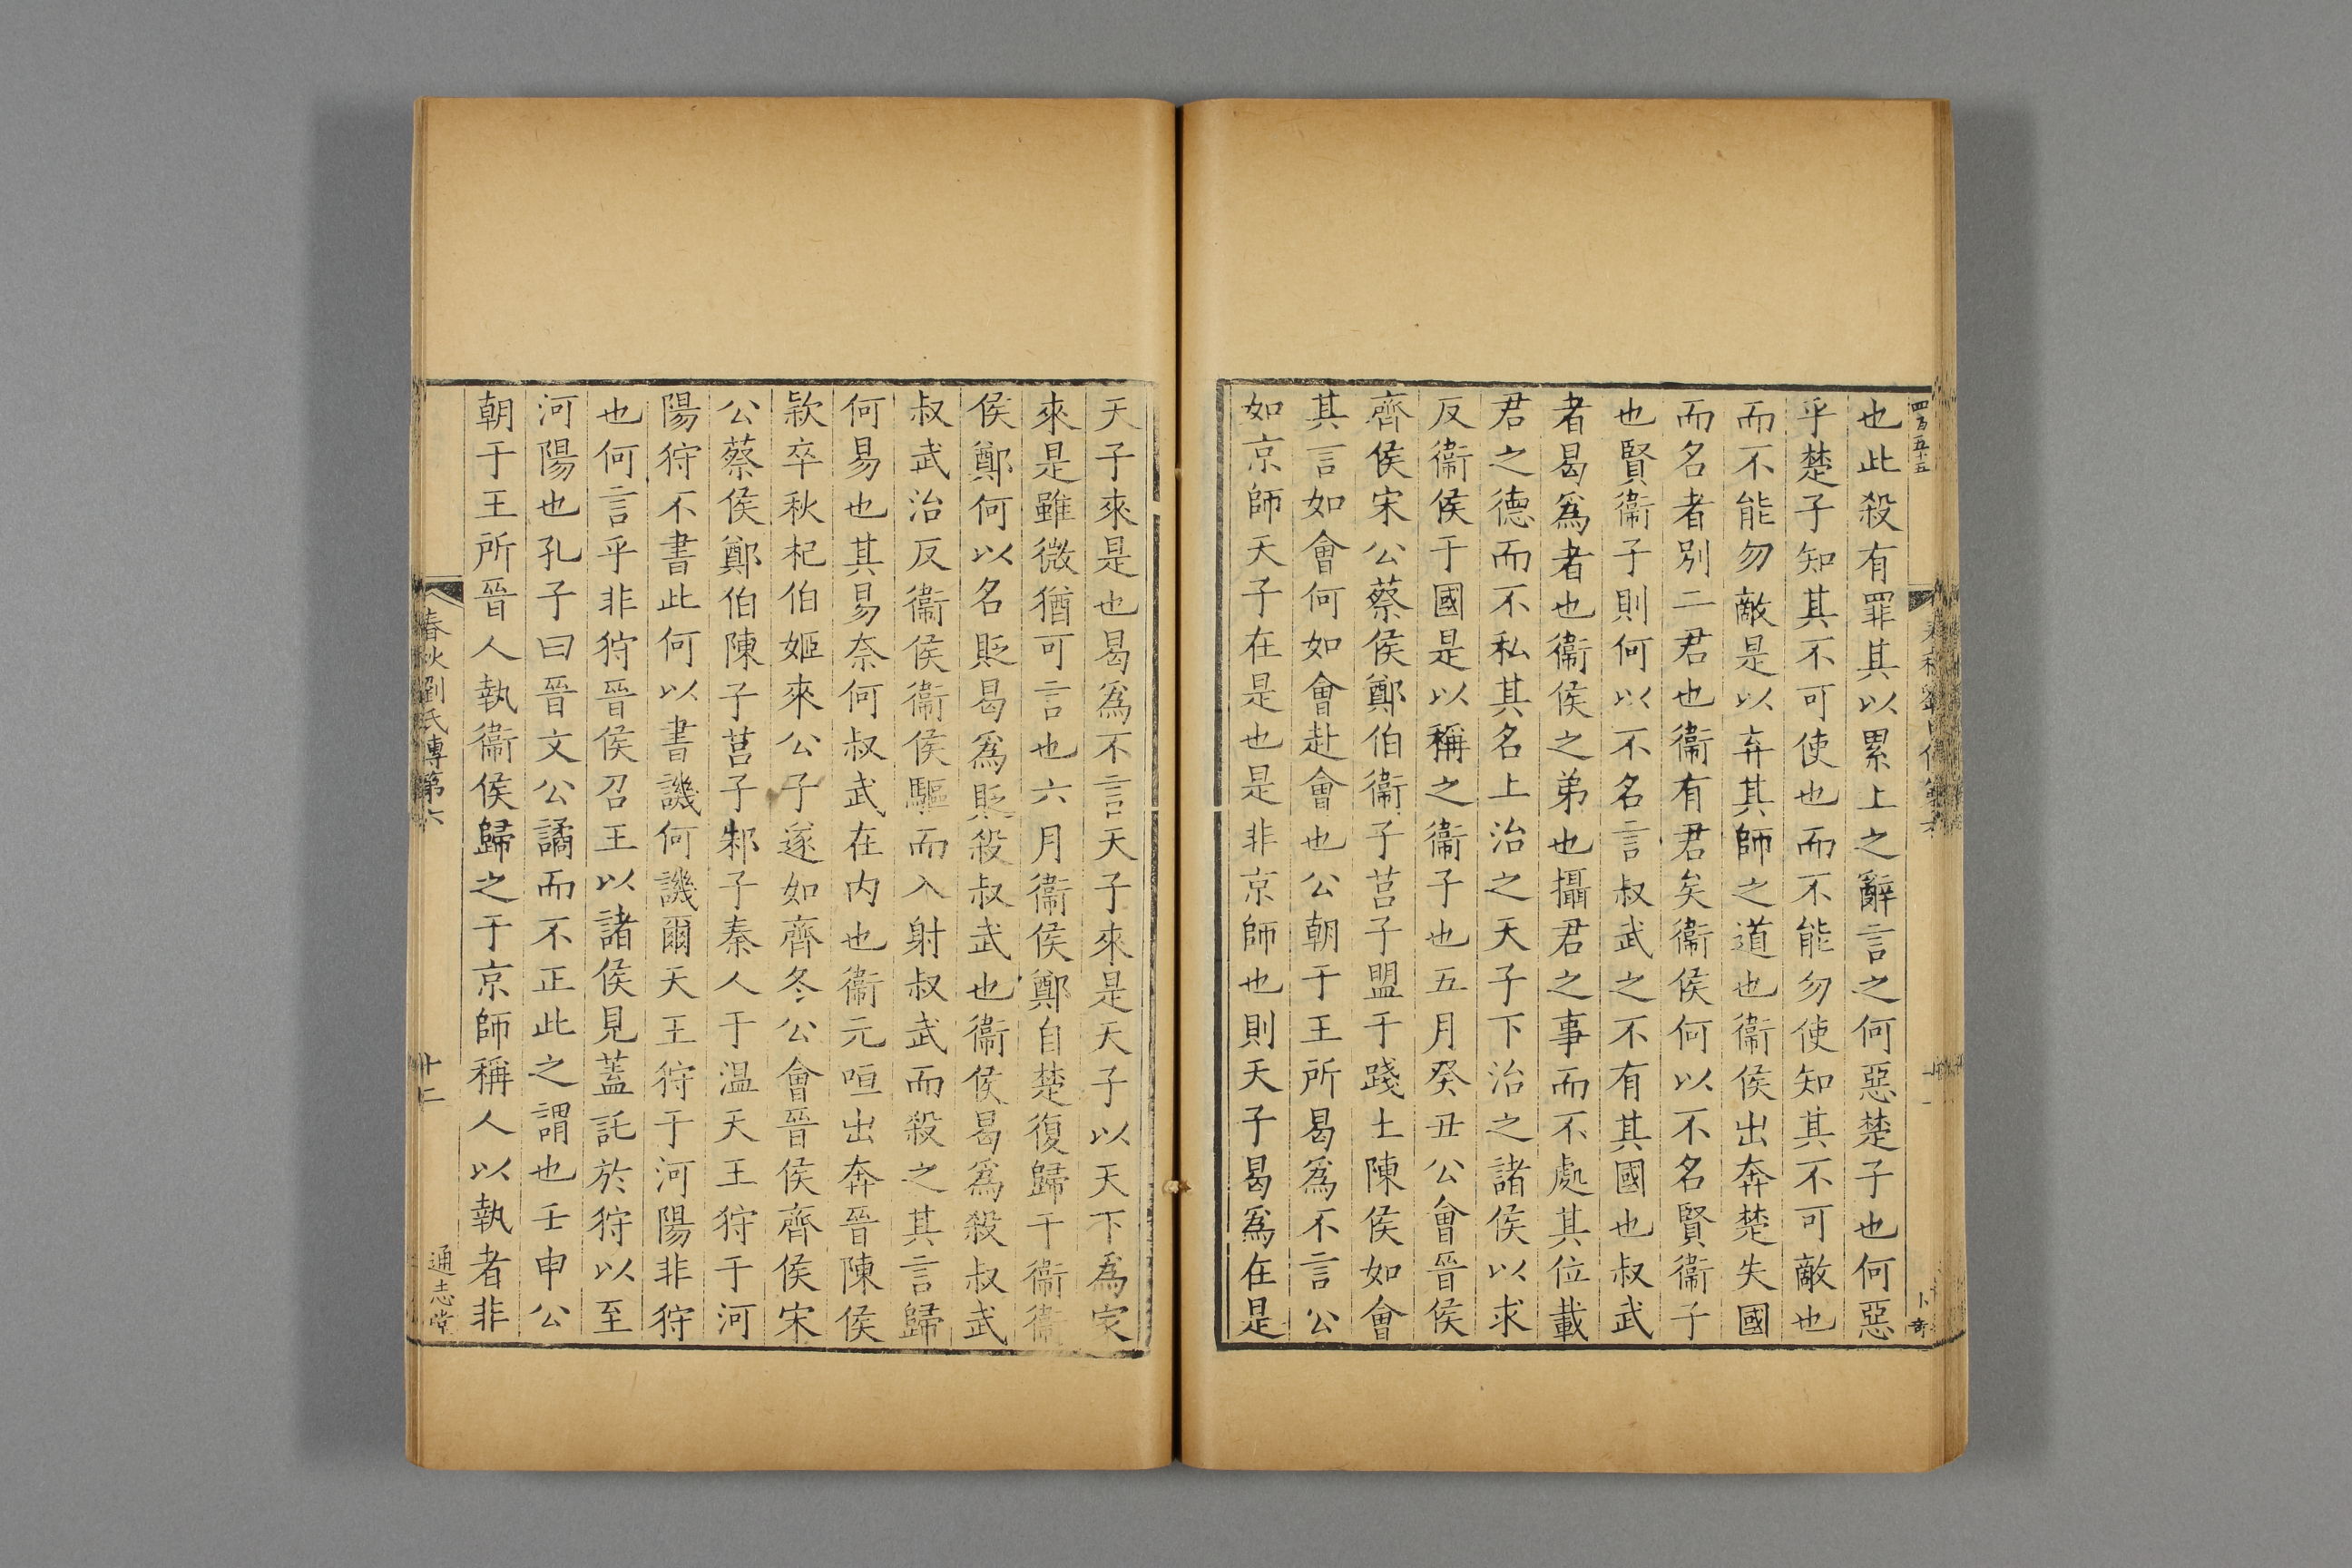 四百五十五
也此殺有罪其以累上之辭言之何惡楚子也何惡
乎楚子知其不可使也而不能勿使知其不可敵也
而不能勿敵是以弃其師之道也衞侯出奔楚失國
而名者别二君也衞有君矣衞侯何以不名賢衞子
也賢衞子則何以不名言叔武之不有其國也叔武
者曷爲者也衞侯之弟也攝君之事而不處其位載
君之德而不私其名上治之天子下治之諸侯以求
反衞侯于國是以稱之衞子也五月癸丑公會晉侯
齊侯宋公蔡侯鄭伯衞子莒子盟于踐土陳侯如會
其言如會何如會赴會也公朝于王所曷爲不言公
如京師天子在是也是非京師也則天子曷爲在是
天子來是也曷爲不言天子來是天子以天下爲家
來是雖微猶可言也六月衞侯鄭自楚復歸于衞衞
侯鄭何以名貶曷爲貶殺叔武也衞侯曷爲殺叔武
叔武治反衞侯衞侯驅而入射叔武而殺之其言歸
何易也其易奈何叔武在内也衞元咺出奔晉陳侯
款卒秋杞伯姬來公子遂如齊冬公會晉侯齊侯宋
公蔡侯鄭伯陳子莒子邾子秦人于温天王狩于河
陽狩不書此何以書譏何譏爾天王狩于河陽非狩
也何言乎非狩晉侯召王以諸侯見蓋託於狩以至
河陽也孔子曰晉文公譎而不正此之謂也壬申公
朝于王所晉人執衞侯歸之于京師稱人以執者非
春秋劉氏傳第六
十二
通志堂